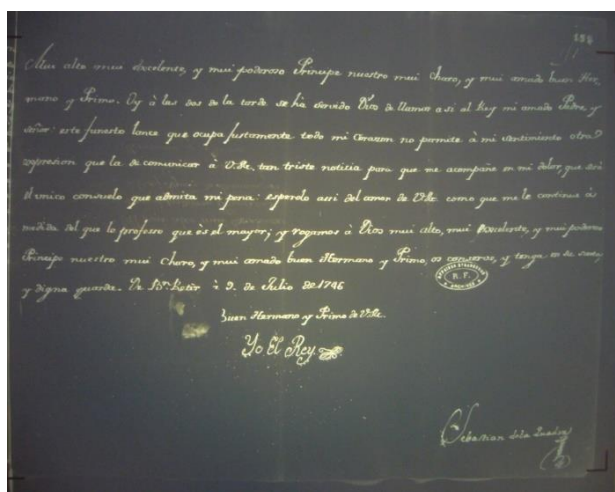 184
Mui alto mui excelente, y mui poderoso Principe nuestro mui Charo, y mui amado buen Her,,
mano y Primo. Oy à las dos de la tarde se ha servido Dios de llamar a si al Rey mi amado Padre y
señor: este funesto lance que ocupa justamente todo mi Corazon no permite à mi sentimiento otra
expresion que la de comunicar à V.Mt. tan triste noticia para que me acompañe en mi dolor, que será
el unico consuelo que admita mi pena: esperolo assi del amor de V.Mt. como que me le continue à
medida del que le professo que és el mayor; y rogamos à Dios mui alto, mui Excelente, y mui poderoso
Principe nuestro mui Charo, y mui amado buen Hermano y Primo, os conserve, y tenga en su santa,
y digna guarda. De Bn. Retir à 9. de Julio de 1746
Buen Hermano y Primo de V.Mt.
Yo El Rey
R.F.
ARCHIVES
Sebastian de la Quadra